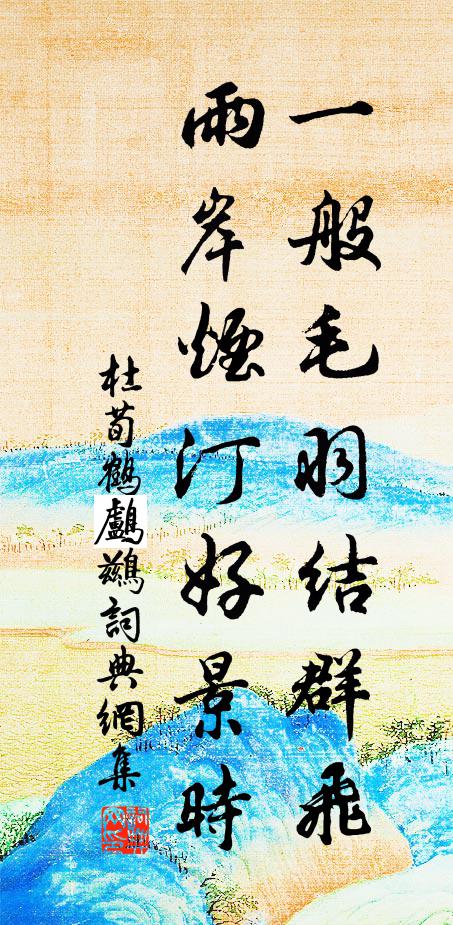 一般毛羽結群飛
雨岸煙汀好景時
杜荀鶴鸕鷀詞典網集